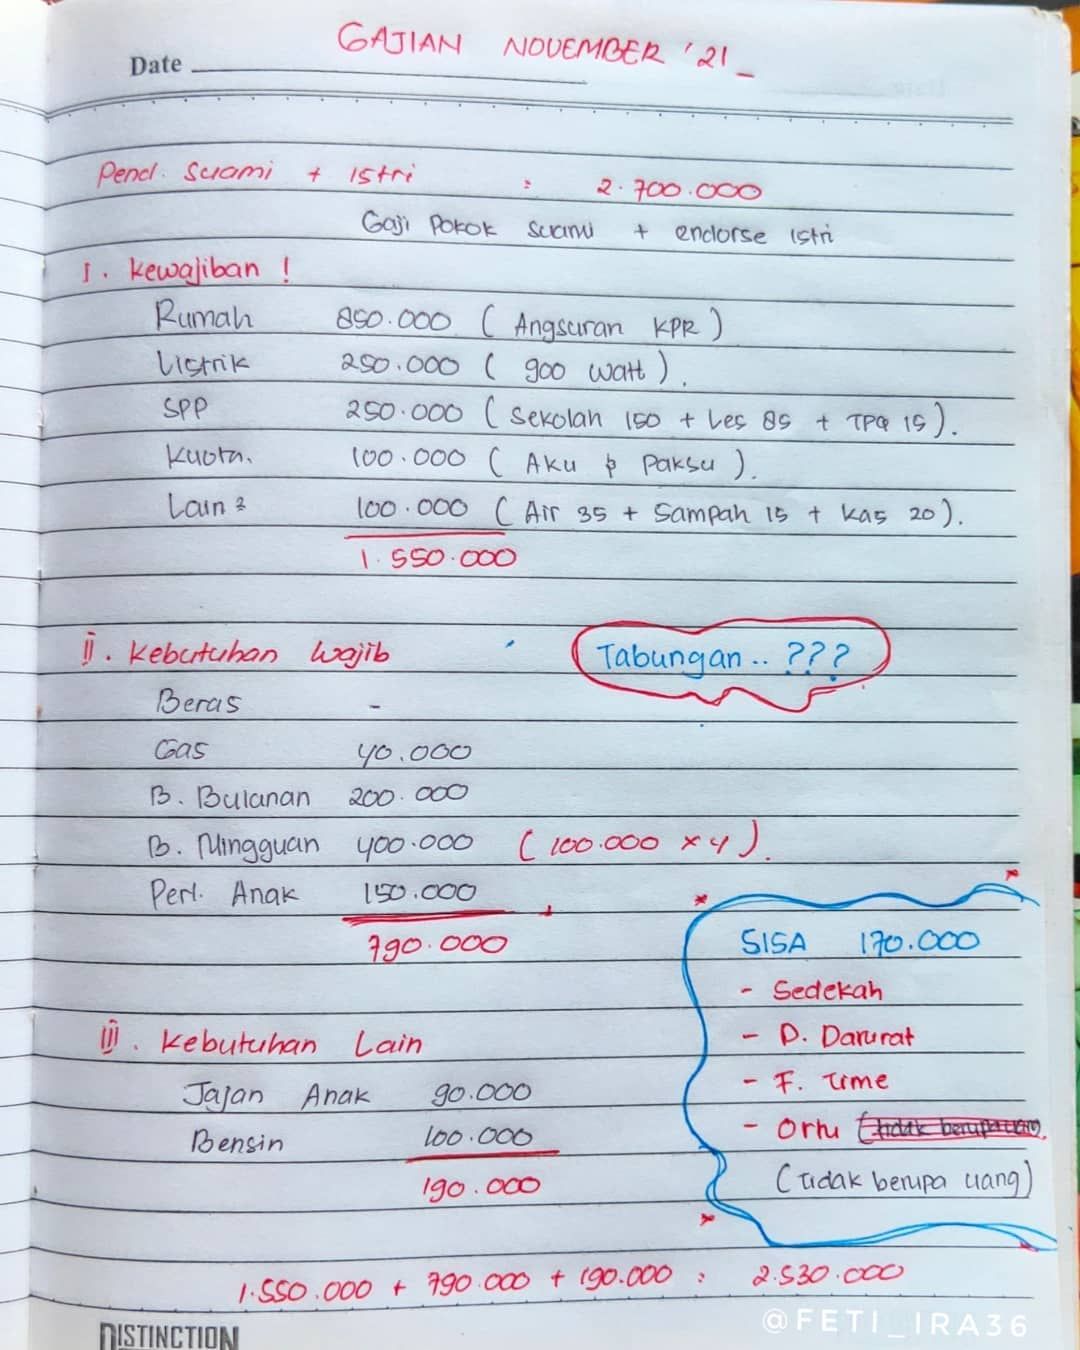 GAJIAN NOVEMBER '21_
Date
Pend. Suami + Istri : 2.700.000
Gaji Pokok Suami + endorse Istri
I. Kewajiban !
Rumah 850.000 ( Angsuran KPR )
Listrik 250.000 ( 900 watt ).
SPP 250.000 ( Sekolah 150 + Les 85 + TPQ 15 ).
Kuota. 100.000 ( Aku & Paksu ).
Lain2 100.000 ( Air 35 + Sampah 15 + Kas 20 ).
1.550.000
II. Kebutuhan Wajib
Tabungan.. ???
Beras -
Gas 40.000
B. Bulanan 200.000
B. Mingguan 400.000 ( 100.000 x 4 ).
Perl. Anak 150.000
790.000
SISA 170.000
- Sedekah
- D. Darurat
- F. Time
- Ortu (tidak berupa uang)
(tidak berupa uang)
III. Kebutuhan Lain
Jajan Anak 90.000
Bensin 100.000
190.000
1.550.000 + 790.000 + 190.000 : 2.530.000
DISTINCTION
@FETI_IRA36